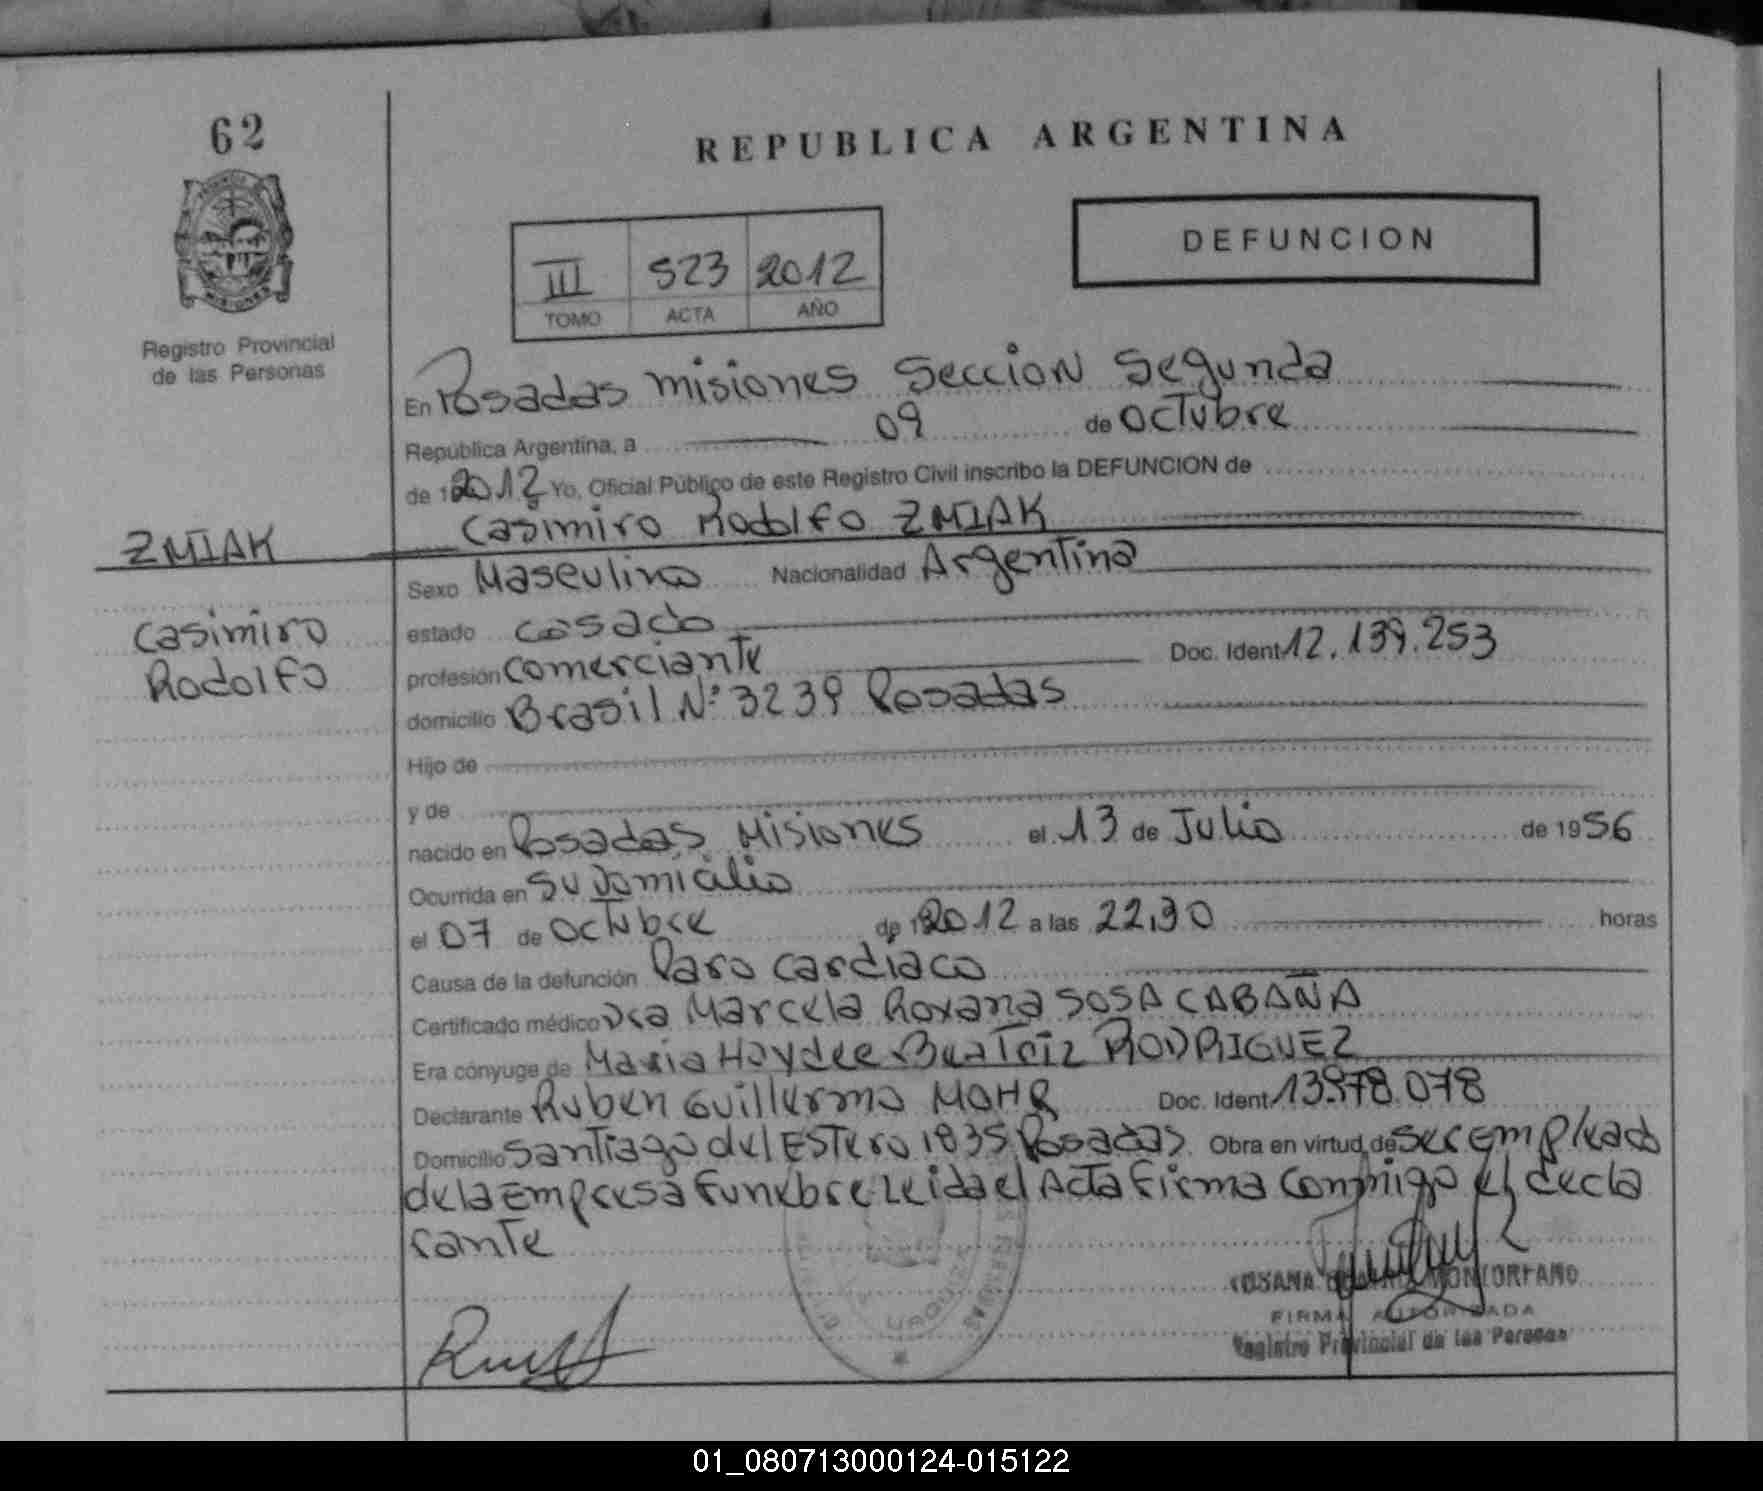 62
REPUBLICA ARGENTINA
DEFUNCION
III 523 2012
TOMO ACTA AÑO
Registro Provincial
de las Personas
En Posadas Misiones Seccion Segunda
República Argentina, a 09 de Octubre
de 12012 Yo, Oficial Público de este Registro Civil inscribo la DEFUNCION de
Casimiro Rodolfo ZMIAK
ZMIAK
Casimiro
Rodolfo
Sexo Masculino Nacionalidad Argentina
estado Casado
profesión Comerciante Doc. Ident 12.139.253
domicilio Brasil Nº 3239 Posadas
Hijo de
y de
nacido en Posadas Misiones el 13 de Julio de 1956
Ocurrida en Su Domicilio
el 07 de Octubre de 2012 a las 22,30 horas
Causa de la defunción Paro Cardiaco
Certificado médico Dra Marcela Roxana SOSA CABAÑA
Era cónyuge de Maria Haydee Beatriz RODRIGUEZ
Declarante Ruben Guillermo MOHR Doc. Ident 13.978.078
Domicilio Santiago del Estero 1835 Posadas Obra en virtud de ser Empleado
de la Empresa Funebre Leida el Acta Firma Conmigo el decla
rante
FIRMA AUTORIZADA
Registro Provincial de las Personas
URQUIZA
01_080713000124-015122